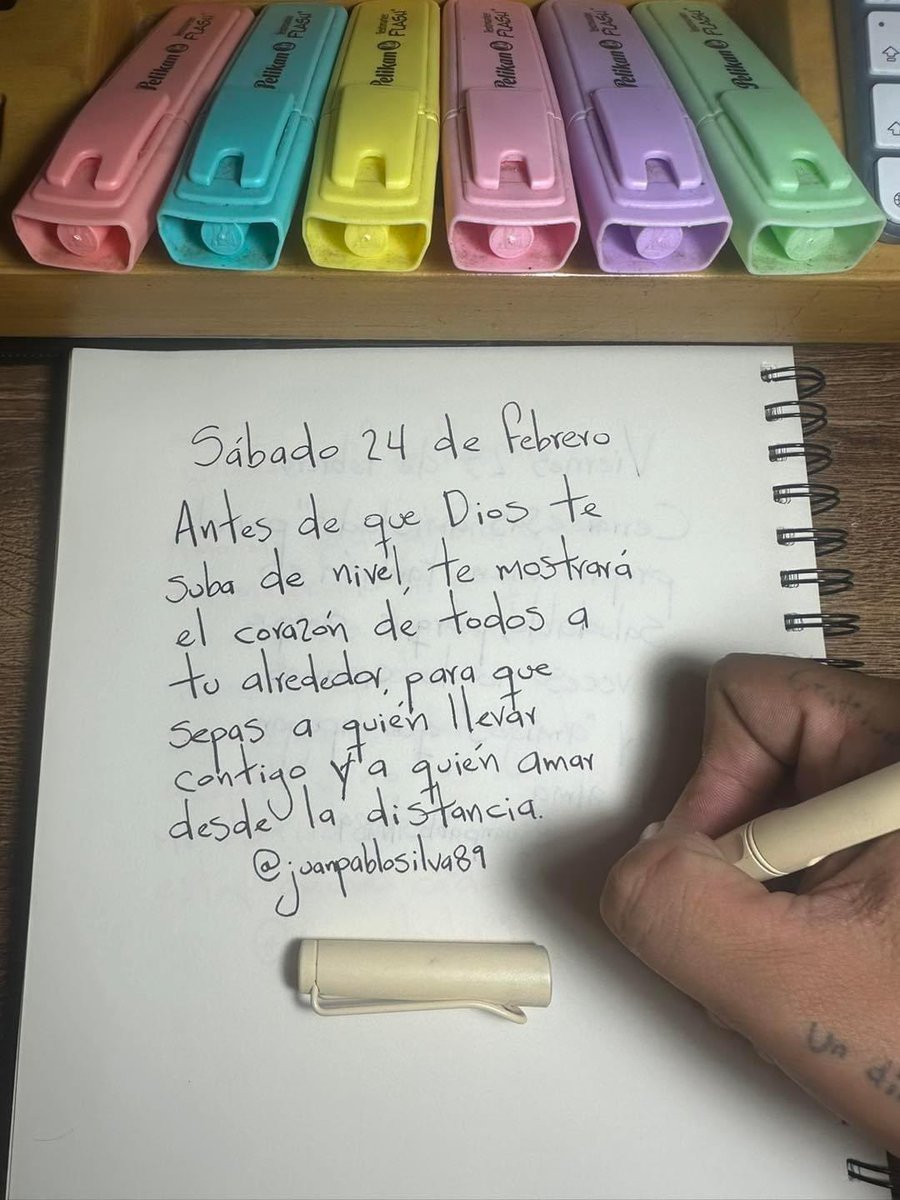 Pelikan Textmarker FLASH
Pelikan Textmarker FLASH
Pelikan Textmarker FLASH
Pelikan Textmarker FLASH
Pelikan Textmarker FLASH
Pelikan Textmarker FLASH
Sábado 24 de febrero
Antes de que Dios te
suba de nivel, te mostrará
el corazón de todos a
tu alrededor, para que
sepas a quién llevar
contigo y a quién amar
desde la distancia.
@juanpablosilva89
Un